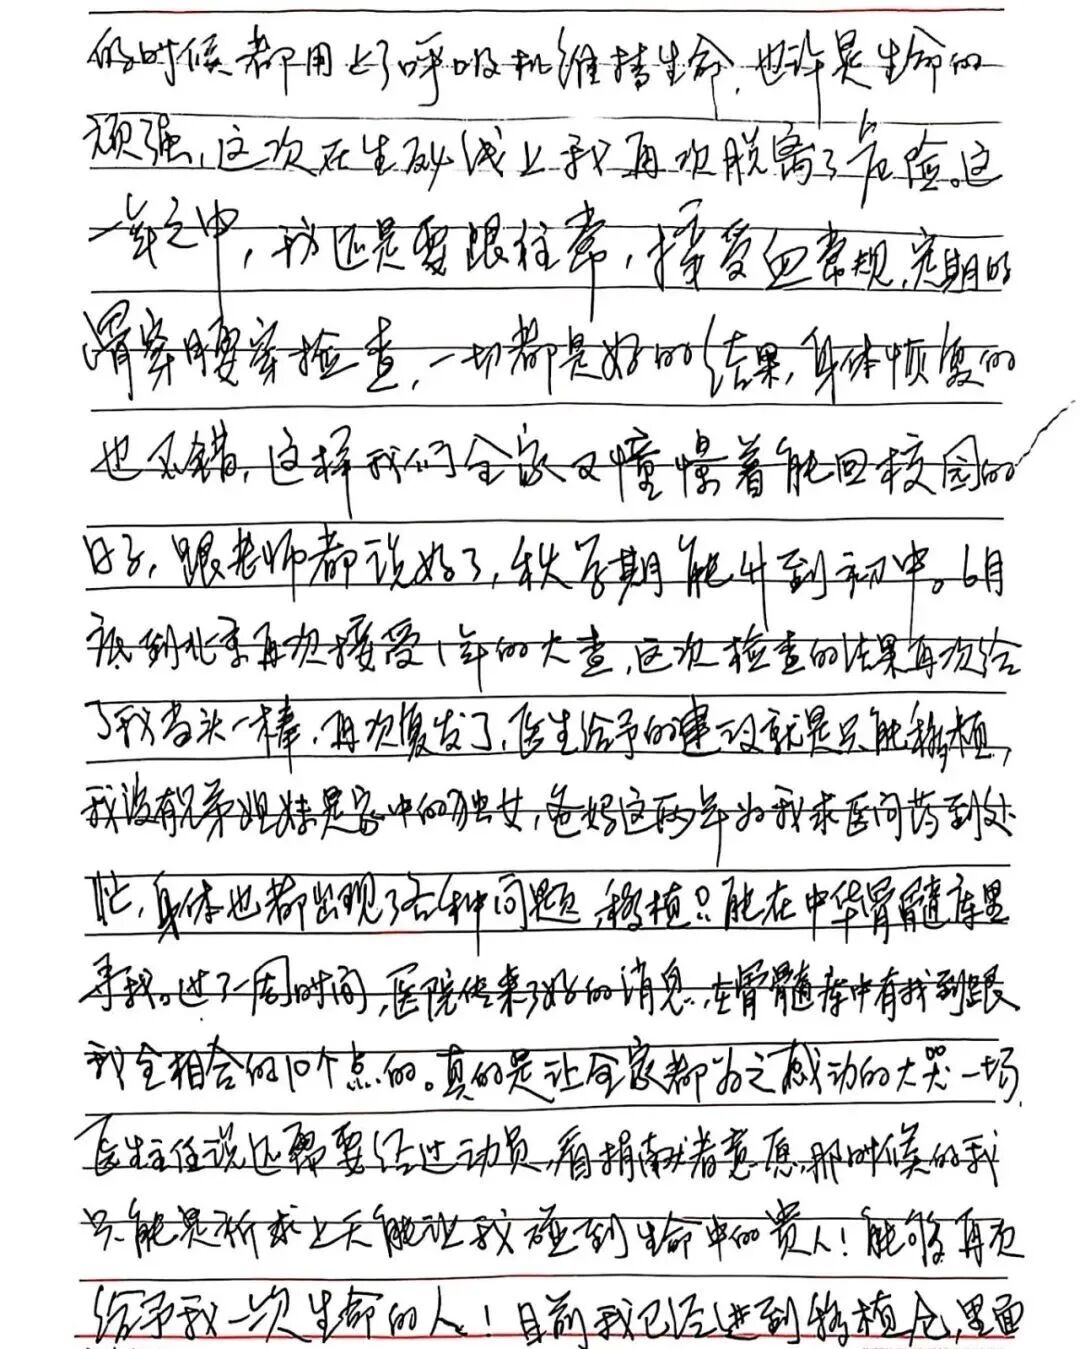 的时候都用上了呼吸机维持生命，也许是生命的
顽强，这次在生死线上我再次脱离了危险。这
一年之中，我还是要跟往常，接受血常规，定期的
骨穿腰穿检查，一切都是好的结果，身体恢复的
也不错，这样我们全家又憧憬着能回校园的
日子，跟老师都说好了，秋学期能升到初中。6月
底到北京再次接受1年的大查，这次检查的结果再次给
了我当头一棒，再次复发了，医生给予的建议就是只能移植，
我没有兄弟姐妹是家中的独女，爸妈这两年为我求医问药到处
忙，身体也都出现了各种问题，移植只能在中华骨髓库里
寻找。过了一周时间，医院传来了好的消息，在骨髓库中有找到跟
我全相合的10个点的。真的是让全家都为之感动的大哭一场，
医生主任说还需要经过动员，看捐献者意愿，那时候的我
只能是祈求上天能让我碰到生命中的贵人！能够再次
给予我一次生命的人！目前我已经进到移植仓，里面